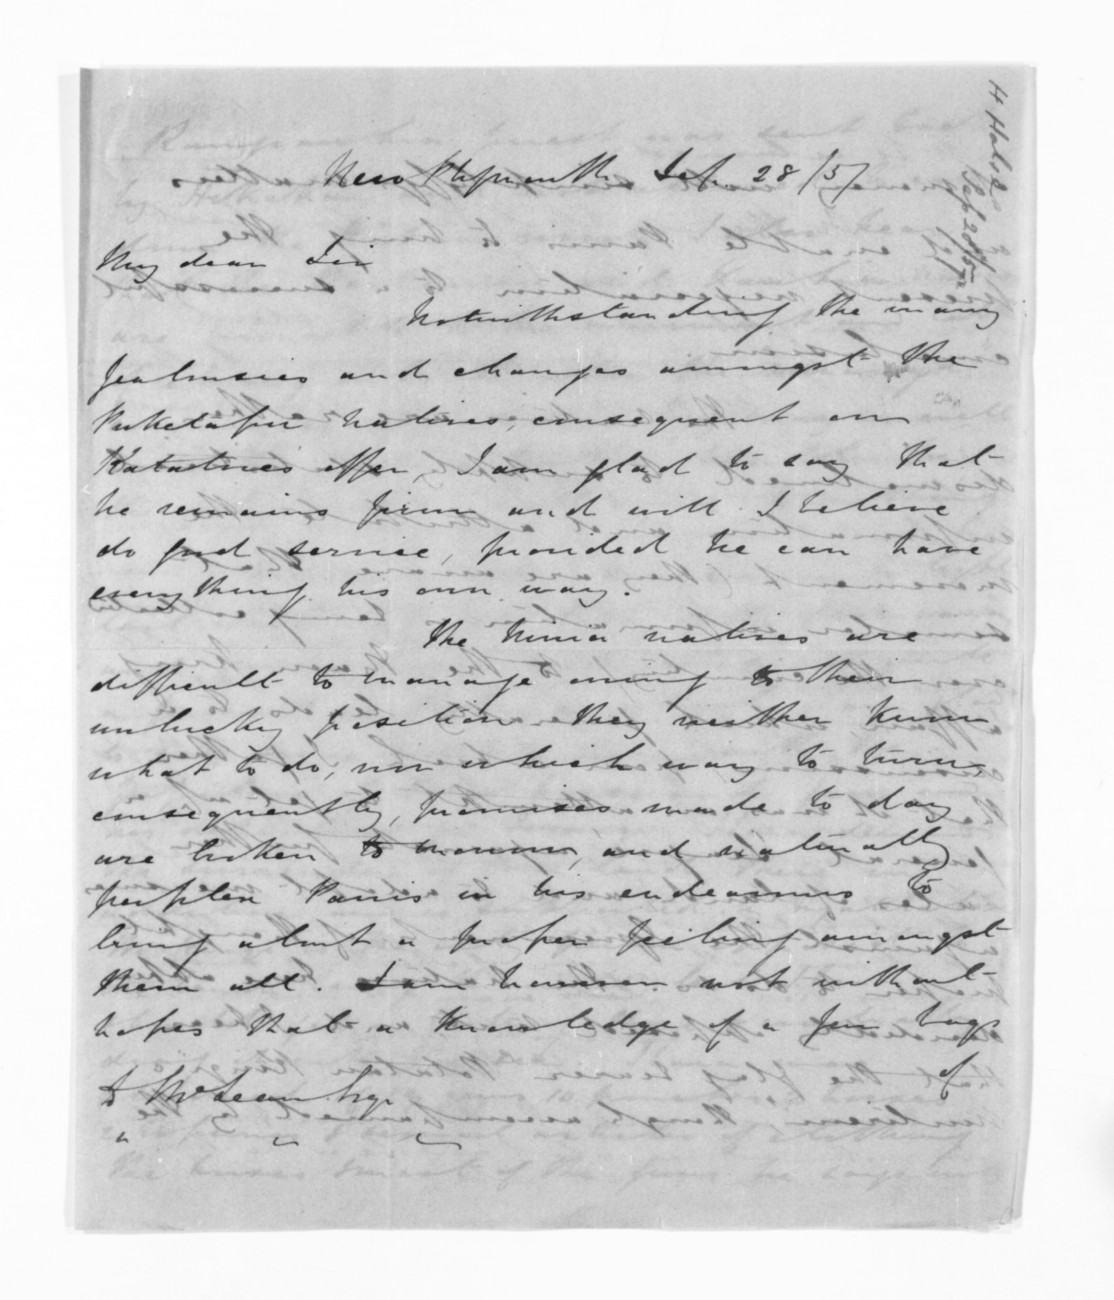 New Plymouth Sep. 28/57
H Halse
Sep 28/57
My dear Sir
Notwithstanding the many
jealousies and changes amongst the
Puketapu natives, consequent on
Katatore's offer, I am glad to say that
he remains firm and will I believe
do good service, provided he can have
everything his own way.
The Ninia natives are
difficult to manage owing to their
unlucky position. They neither know
what to do, nor which way to turn,
consequently, promises made to day
are broken to morrow, and naturally
perplex Parris in his endeavours to
bring about a proper feeling amongst
them all. I am however not without
hopes that a knowledge of a few bags
of
D McLean Esqr
" " "